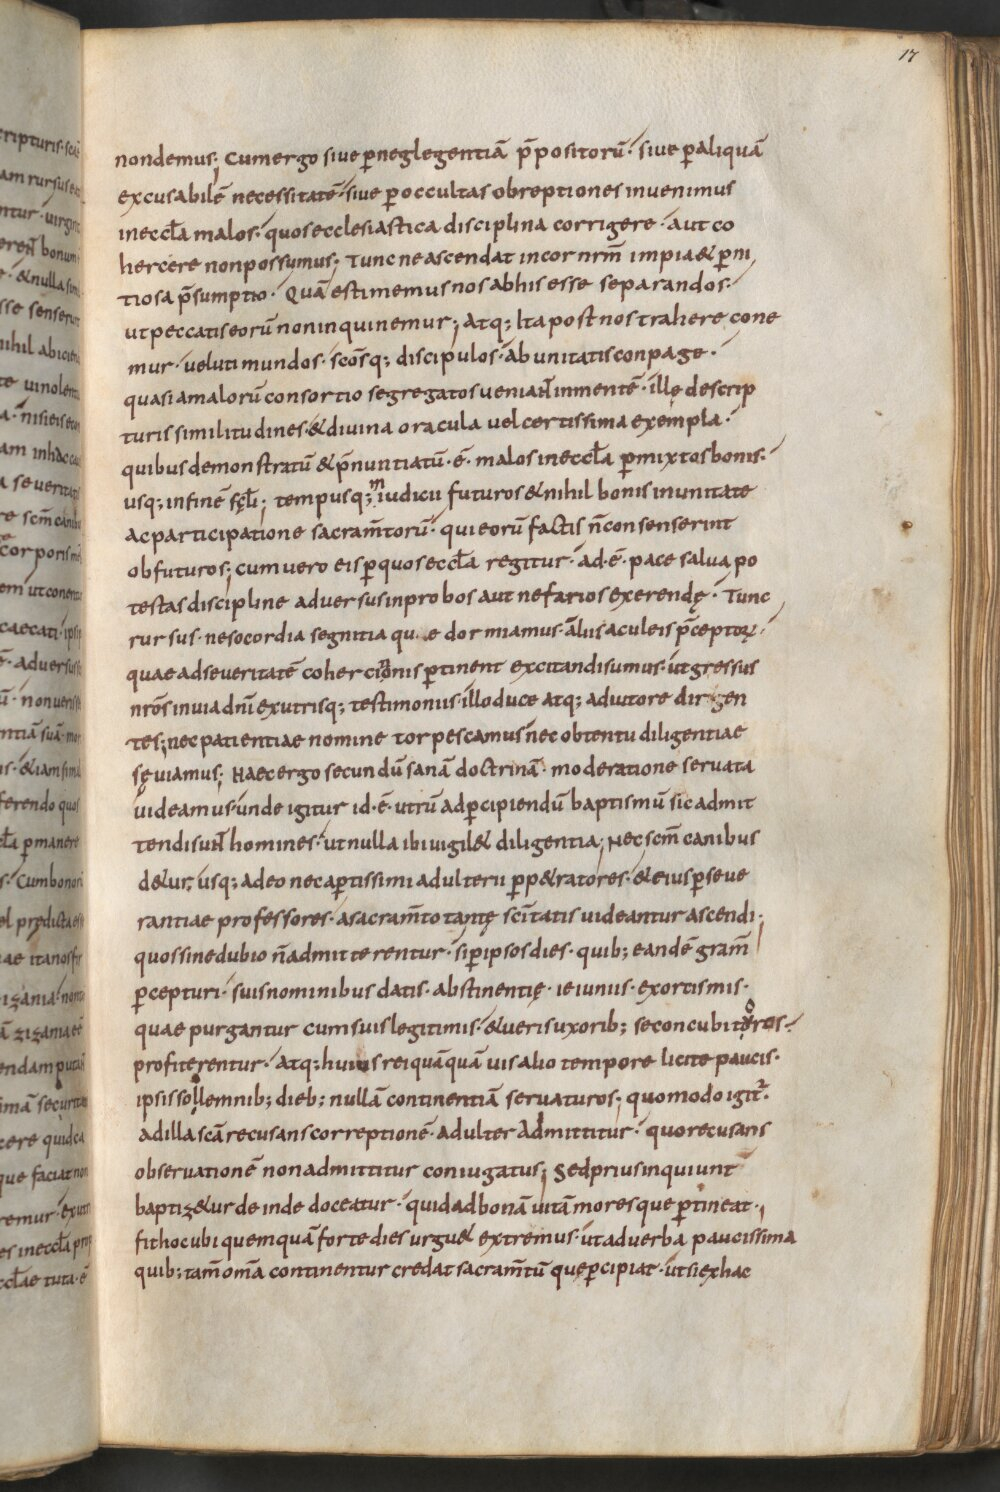 17
nondemus; Cumergo siue ꝑneglegentiā p̄positorū· siue ꝑaliquā
excusabilē necessitatē· siue ꝑoccultas obreptiones inuenimus
ineccła malos· quosecclesiastica disciplina corrigere· aut co
hercere nonpossumus; Tunc neascendat incor nr̄m impia& ꝑni
tiosa p̄sumptio· Quā estimemus nos abhis esse separandos·
utpeccatiseorū noninquinemur; Atq; Ita post nos trahere cone
mur· ueluti mundos· scōsq; discipulos· Ab unitatis conpage·
quasi amalorū consortio segregatos ueniaN̄t inmentē· illę descrip
turis similitudines· & diuina oracula uel certissima exempla·
quibus demonstratū & p̄nuntiatū·ē· malos ineccła ꝑmixtos bonis·
usq; infinē sęcłi; tempusq; iudicii futuros & nihil bonis inunitate
acparticipatione sacram̄torū· qui eorū factis n̄ consenserint
obfuturos; cum uero eis ꝑquos eccła regitur· ad·ē· pace salua po
testas discipline aduersus inprobos aut nefarios exerendę· Tunc
rursus· nesocordia segnitia qu e dormiamus· Aliis aculeis p̄ceptoꝝ·
quae adseueritatē cohercionis ꝑtinent excitandi sumus· ut gressus
nrōs inuia dn̄i exutrisq; testimoniis· illo duce atq; adiutore dirigen
tes; nec patientiae nomine torpescamus nec obtentu diligentiae
sęuiamus; Haec ergo secundū sanā doctrinā· moderatione seruata
uideamus· unde igitur id·ē· utrū adꝑcipiendū baptismū sic admit
tendi suN̄t homines· ut nulla ibi uigil& diligentia; Nec scm̄ canibus
d&ur; usq; adeo nec aꝑtissimi adulterii ꝑp&ratores· & eius ꝑseue
rantiae professores· asacram̄to tantę scītatis uideantur ascendi·
quos sinedubio n̄ admitterentur· si ꝑipsos dies· quib; eandē gram̄
ꝑcepturi· suis nominibus datis· abstinentię· ieiuniis· exortismis·
quae purgantur cum suis legitimis· & ueris uxorib; se concubituros·
profiterentur· Atq; huius rei quāquā uis alio tempore licite paucis·
ipsis sollemnib; dieb; nullā continentiā seruaturos; quomodo igit᷑·
adilla scā recusans correptionē· adulter Admittitur· quo recusans
obseruationē nonadmittitur coniugatus; Sed prius inquiunt
baptiz&ur deinde doceatur· quid adbonā uitā moresque ꝑtineat·
fit hoc ubi quemquā forte dies urgu& extremus· ut aduerba paucissima
quib; tam̄ om̄a continentur credat sacram̄tū que ꝑcipiat· ut si exhac